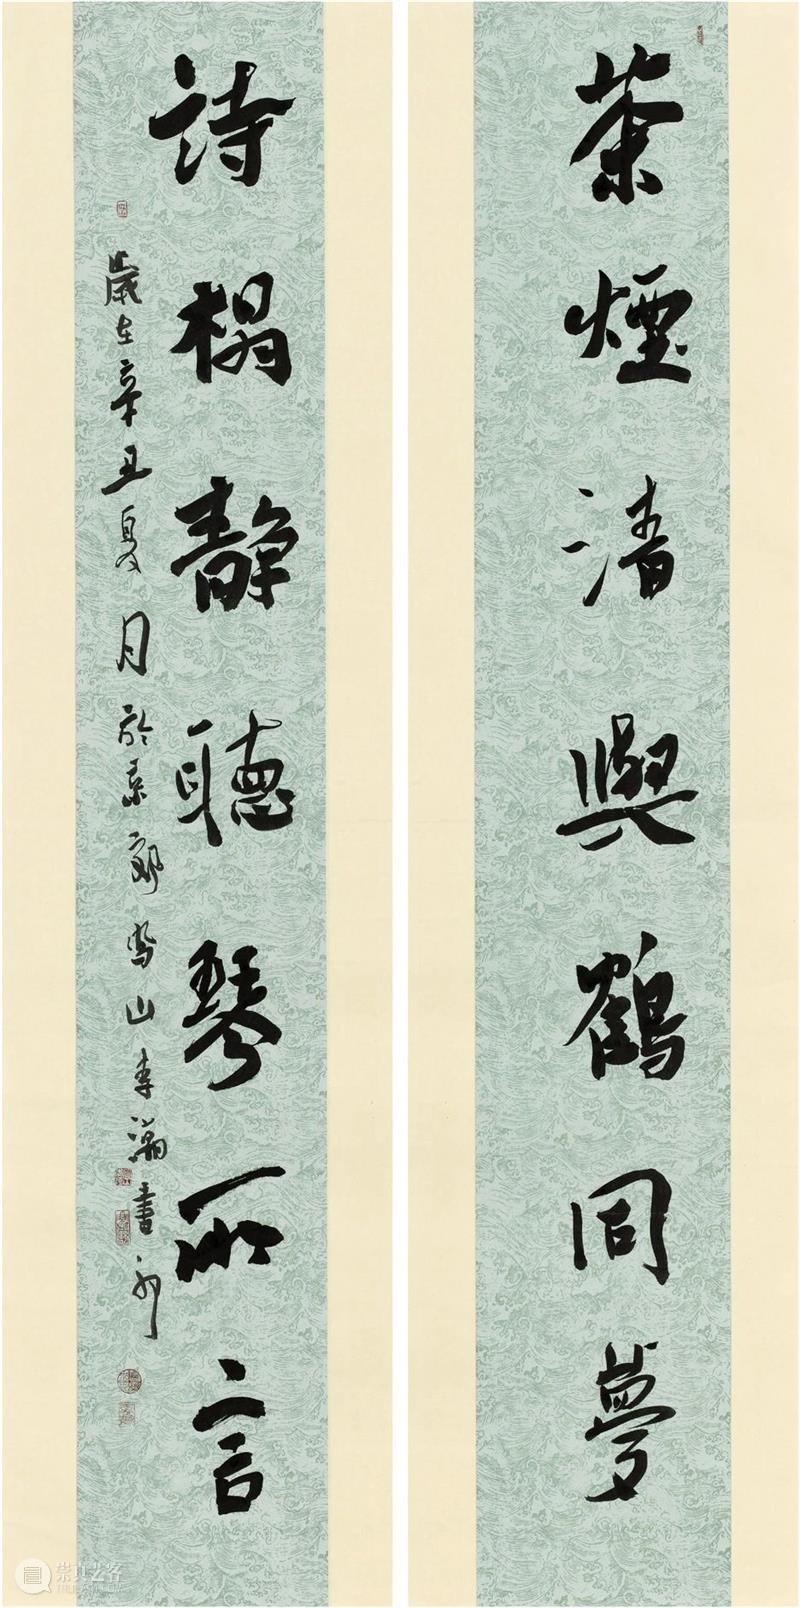 茶煙清與鶴同夢
詩榻靜聽琴所言
歲在辛丑夏月於京郊 山李瀚書
崇真艺客
TRUEART.COM